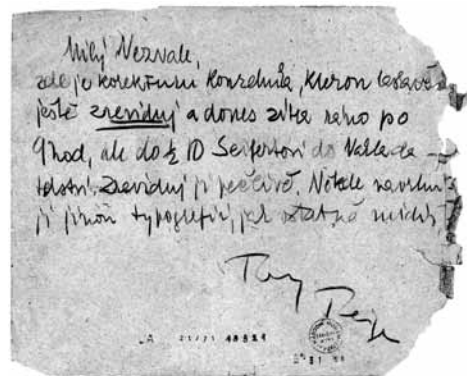 Milý Nezvale,
zde je korekturu Kouzelníka, kterou laskavě
ještě zreviduj a dones zítra ráno po
9 hod, ale do ½ 10 Seifertovi do Naklada-
telství. Zreviduj ji pečlivě. Někde navrhuji
ji jinou typografii, jak ostatně
Tvůj Teige